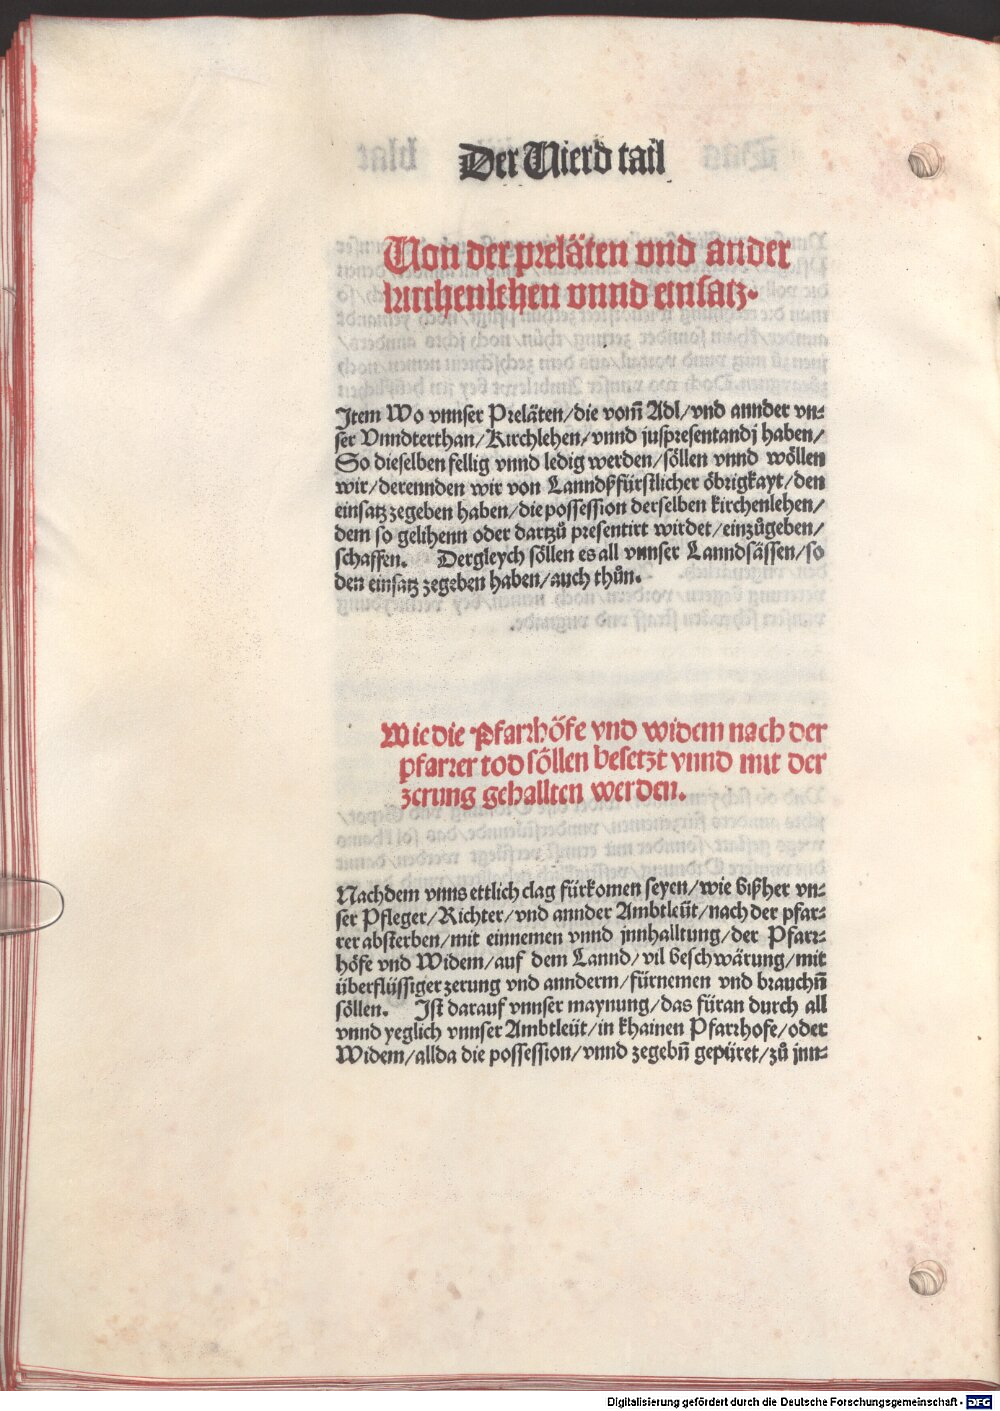 Der Vierd tail
Von der preläten vnd ander
kirchenlehen vnnd einsatz.
Item Wo vnnser Preläten/die vom̄ Adl/vnd annder vn⸗
ser Vnndterthan/Kirchlehen/vnnd juspresentandj haben/
So dieselben fellig vnnd ledig werden/söllen vnnd wöllen
wir/derennden wir von Lanndßfürstlicher öbrigkayt/den
einsatz zegeben haben/die possession derselben kirchenlehen/
dem so gelihenn oder dartzů presentirt wirdet/einzůgeben/
schaffen. Dergleych söllen es all vnnser Lanndsässen/so
den einsatz zegeben haben/auch thůn.
Wie die Pfarrhöfe vnd widem nach der
pfarrer tod söllen besetzt vnnd mit der
zerung gehallten werden.
Nachdem vnns ettlich clag fürkomen seyen/wie bißher vn⸗
ser Pfleger/Richter/vnd annder Ambtleüt/nach der pfar⸗
rer absterben/mit einnemen vnnd jnnhalltung/der Pfarr⸗
höfe vnd Widem/auf dem Lannd/vil beschwärung/mit
überflüssiger zerung vnd annderm/fürnemen vnd brauchn̄
söllen. Ist darauf vnnser maynung/das füran durch all
vnnd yeglich vnnser Ambtleüt/in khainen Pfarrhofe/oder
Widem/allda die possession/vnnd zegebn̄ gepüret/zů jnn⸗
Digitalisierung gefördert durch die Deutsche Forschungsgemeinschaft - DFG